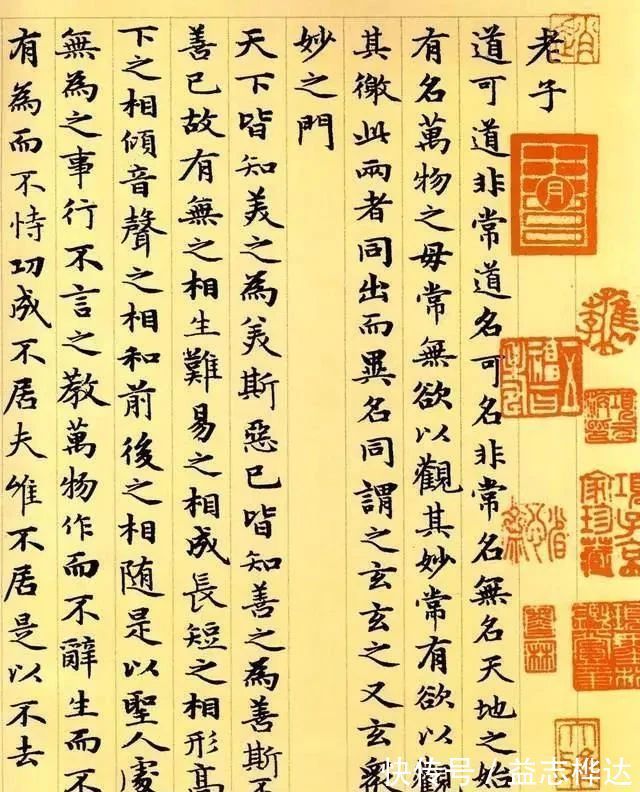 老子
道可道非常道名可名非常名無名天地之始
有名萬物之母常無欲以觀其妙常有欲以觀
其徼此兩者同出而異名同謂之玄玄之又玄衆
妙之門
天下皆知美之為美斯惡已皆知善之為善斯不
善已故有無之相生難易之相成長短之相形高
下之相傾音聲之相和前後之相随是以聖人處
無為之事行不言之教萬物作而不辭生而不
有為而不恃功成不居夫唯不居是以不去
項子京家珍藏
快传号/益志桦达